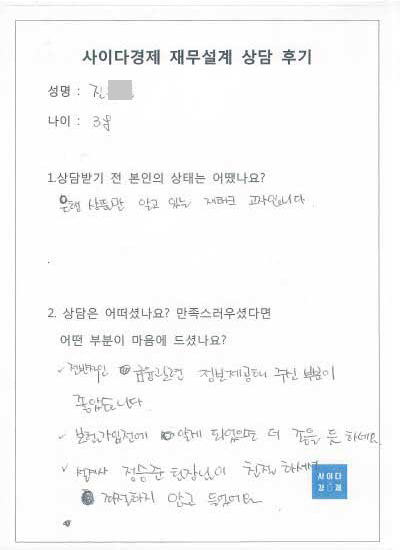 사이다경제 재무설계 상담 후기
성명 : 진
나이 : 38
1.상담받기 전 본인의 상태는 어땠나요?
은행 상품만 알고 있는 재테크 고자입니다.
2. 상담은 어떠셨나요? 만족스러우셨다면
어떤 부분이 마음에 드셨나요?
✓ 전반적인 금융관련 정보제공해 주신 부분이
좋았습니다
✓ 보험가입전에 알게 되었으면 더 좋을 듯 하네요
✓ 정승준 팀장님이 친절하세요
지절하지 않고 들었어요
사이다
경제